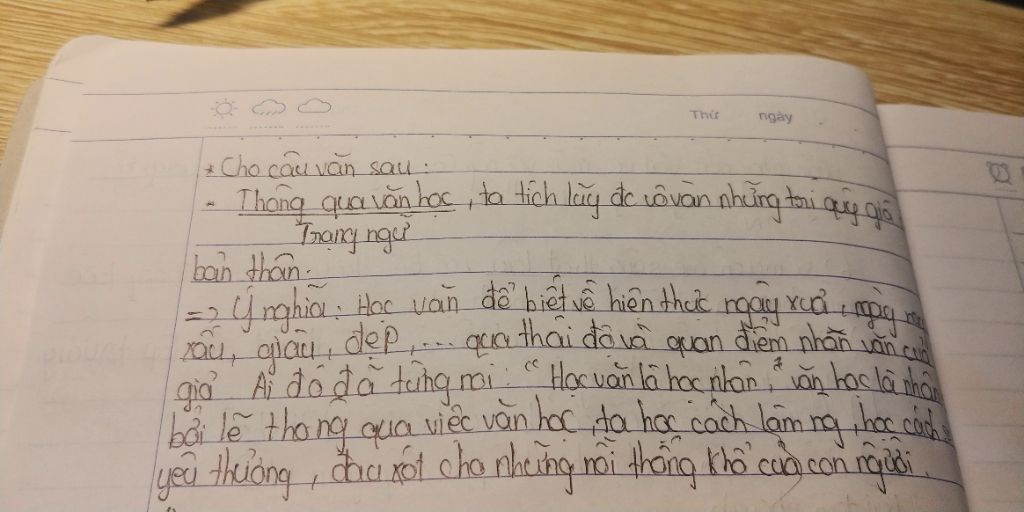 Thứ ngày
* Cho câu văn sau:
- Thông qua văn học, ta tích lũy đc vô vàn những tri quý giá
Trạng ngữ
bản thân.
=> Ý nghĩa: Học văn để biết về hiện thực ngày xưa, ngày
xấu, giàu, đẹp,... qua thái độ và quan điểm nhân văn của
giả Ai đó đã từng nói: "Học văn là học nhân," văn học là nhân
bởi lẽ thông qua việc văn học, ta học cách làm ng, học cách
yêu thương, đau xót cho những nỗi thống khổ của con người.